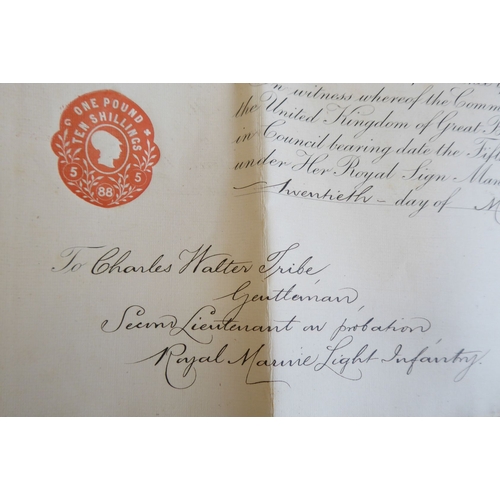 ONE POUND
TEN SHILLINGS
5 5
88
in witness whereof the Com
the United Kingdom of Great
in Council bearing date the Fif
under Her Royal Sign Man
Twentieth day of M
To Charles Walter Tribe
Gentleman,
Second Lieutenant on probation
Royal Marine Light Infantry.